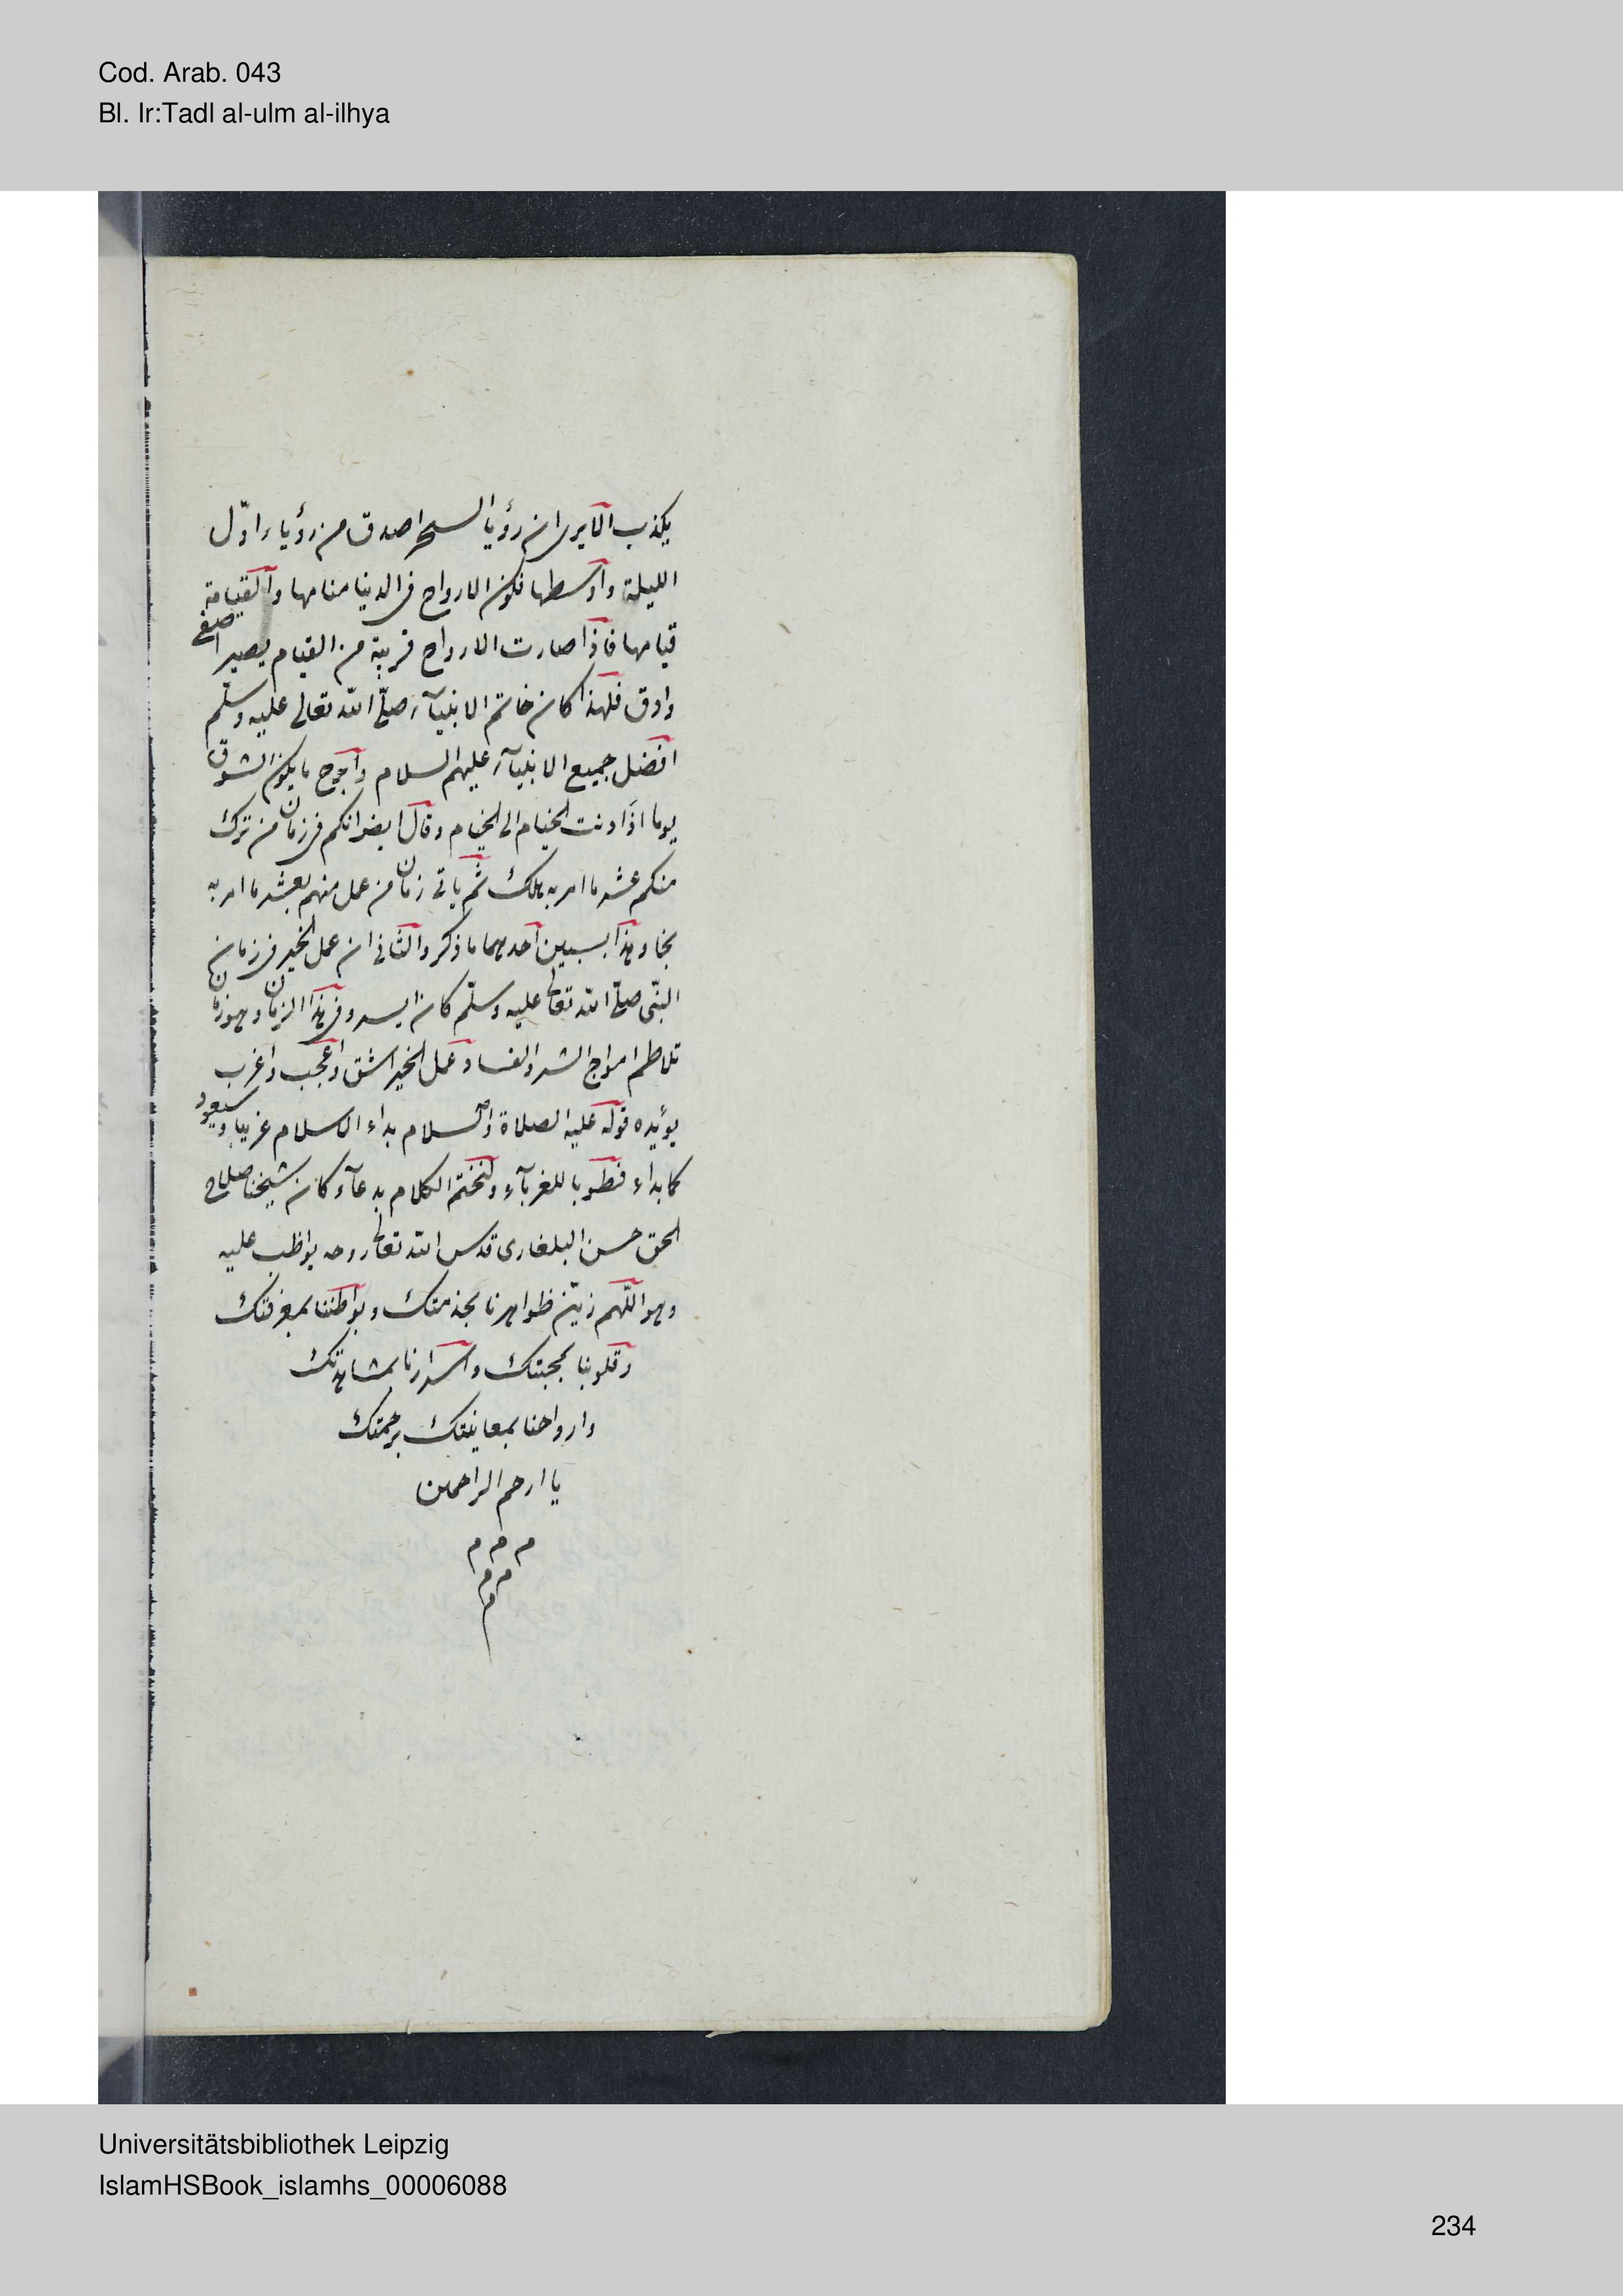 Cod. Arab. 043
Bl. Ir:Tadl al-ulm al-ilhya
يكذب الا يرى ان رؤيا السحر اصدق من رؤيا اوّل
الليلة واوسطها فكون الارواح فى الدنيا منامها والقيامة
قيامها فاذا صارت الارواح قريبة من القيام يصير اصفى
وادق فلهذا كان خاتم الانبيآء صلّى الله تعالى عليه وسلّم
افضل جميع الانبيآء عليهم السلام وابرح ما يكون الشوق
يوما اذا دنت الخيام الى الخيام وقال ايضا انكم فى زمان من ترك
منكم عشر ما امر به هلك ثم ياتى زمان من عمل منهم بعشر ما امر به
نجا وهذا بسببين احدهما ما ذكر والثانى ان عمل الخير فى زمان
النبّى صلّى الله تعالى عليه وسلّم كان ايسر وفى هذا الزمان وهو زمان
تلاطم امواج الشر والفساد عمل الخير اشق واعجب واغرب
يؤيده قوله عليه الصلاة والسلام بداء الاسلام غريبا وسيعود
كما بداء فطوبا للغربآء ولنختم الكلام بدعآء كان شيخنا صلاح
الحق حسن البلغارى قدس الله تعالى روحه يواظب عليه
وهو اللّهم زيّن ظواهرنا بخدمتك وبواطننا بمعرفتك
وقلوبنا بمحبتك واسرارنا بمشاهدتك
وارواحنا بمعاينتك برحمتك
يا ارحم الراحمين
م م م
م م
م
Universitätsbibliothek Leipzig
IslamHSBook_islamhs_00006088
234